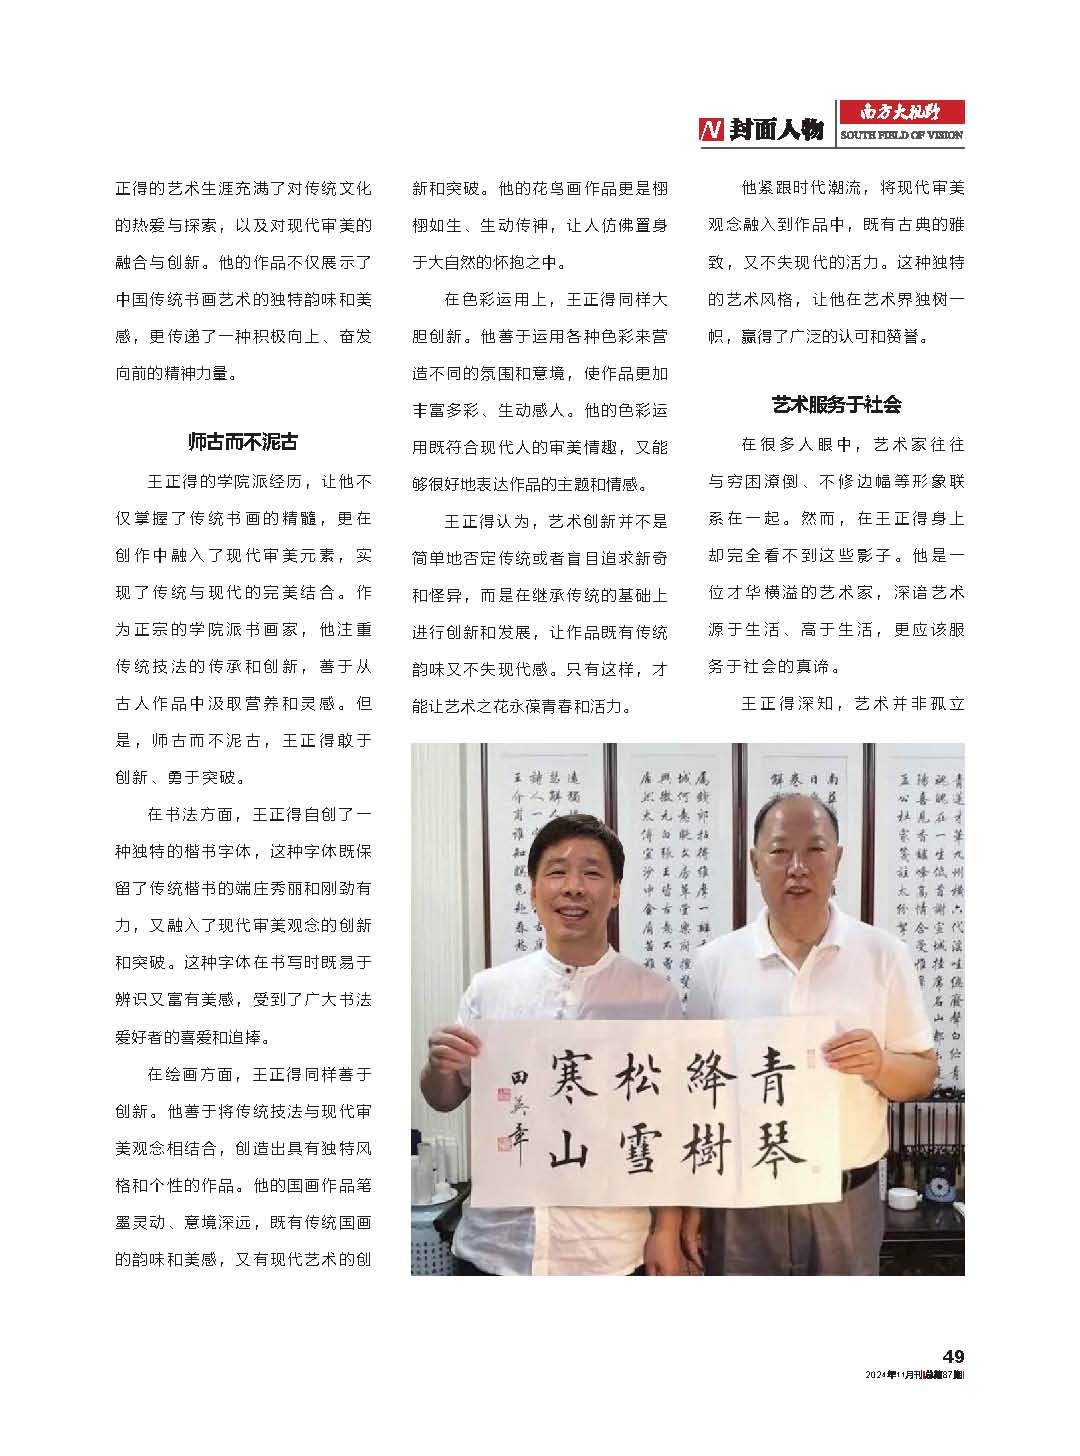 封面人物
南方大视野
SOUTH FIELD OF VISION
正得的艺术生涯充满了对传统文化
的热爱与探索，以及对现代审美的
融合与创新。他的作品不仅展示了
中国传统书画艺术的独特韵味和美
感，更传递了一种积极向上、奋发
向前的精神力量。
师古而不泥古
王正得的学院派经历，让他不
仅掌握了传统书画的精髓，更在
创作中融入了现代审美元素，实
现了传统与现代的完美结合。作
为正宗的学院派书画家，他注重
传统技法的传承和创新，善于从
古人作品中汲取营养和灵感。但
是，师古而不泥古，王正得敢于
创新、勇于突破。
在书法方面，王正得自创了一
种独特的楷书字体，这种字体既保
留了传统楷书的端庄秀丽和刚劲有
力，又融入了现代审美观念的创新
和突破。这种字体在书写时既易于
辨识又富有美感，受到了广大书法
爱好者的喜爱和追捧。
在绘画方面，王正得同样善于
创新。他善于将传统技法与现代审
美观念相结合，创造出具有独特风
格和个性的作品。他的国画作品笔
墨灵动、意境深远，既有传统国画
的韵味和美感，又有现代艺术的创
新和突破。他的花鸟画作品更是栩
栩如生、生动传神，让人仿佛置身
于大自然的怀抱之中。
在色彩运用上，王正得同样大
胆创新。他善于运用各种色彩来营
造不同的氛围和意境，使作品更加
丰富多彩、生动感人。他的色彩运
用既符合现代人的审美情趣，又能
够很好地表达作品的主题和情感。
王正得认为，艺术创新并不是
简单地否定传统或者盲目追求新奇
和怪异，而是在继承传统的基础上
进行创新和发展，让作品既有传统
韵味又不失现代感。只有这样，才
能让艺术之花永葆青春和活力。
他紧跟时代潮流，将现代审美
观念融入到作品中，既有古典的雅
致，又不失现代的活力。这种独特
的艺术风格，让他在艺术界独树一
帜，赢得了广泛的认可和赞誉。
艺术服务于社会
在很多人眼中，艺术家往往
与穷困潦倒、不修边幅等形象联
系在一起。然而，在王正得身上
却完全看不到这些影子。他是一
位才华横溢的艺术家，深谙艺术
源于生活、高于生活，更应该服
务于社会的真谛。
王正得深知，艺术并非孤立
青琴
絳樹
松雪
寒山
田英章
49
2024年11月刊|总第87期|